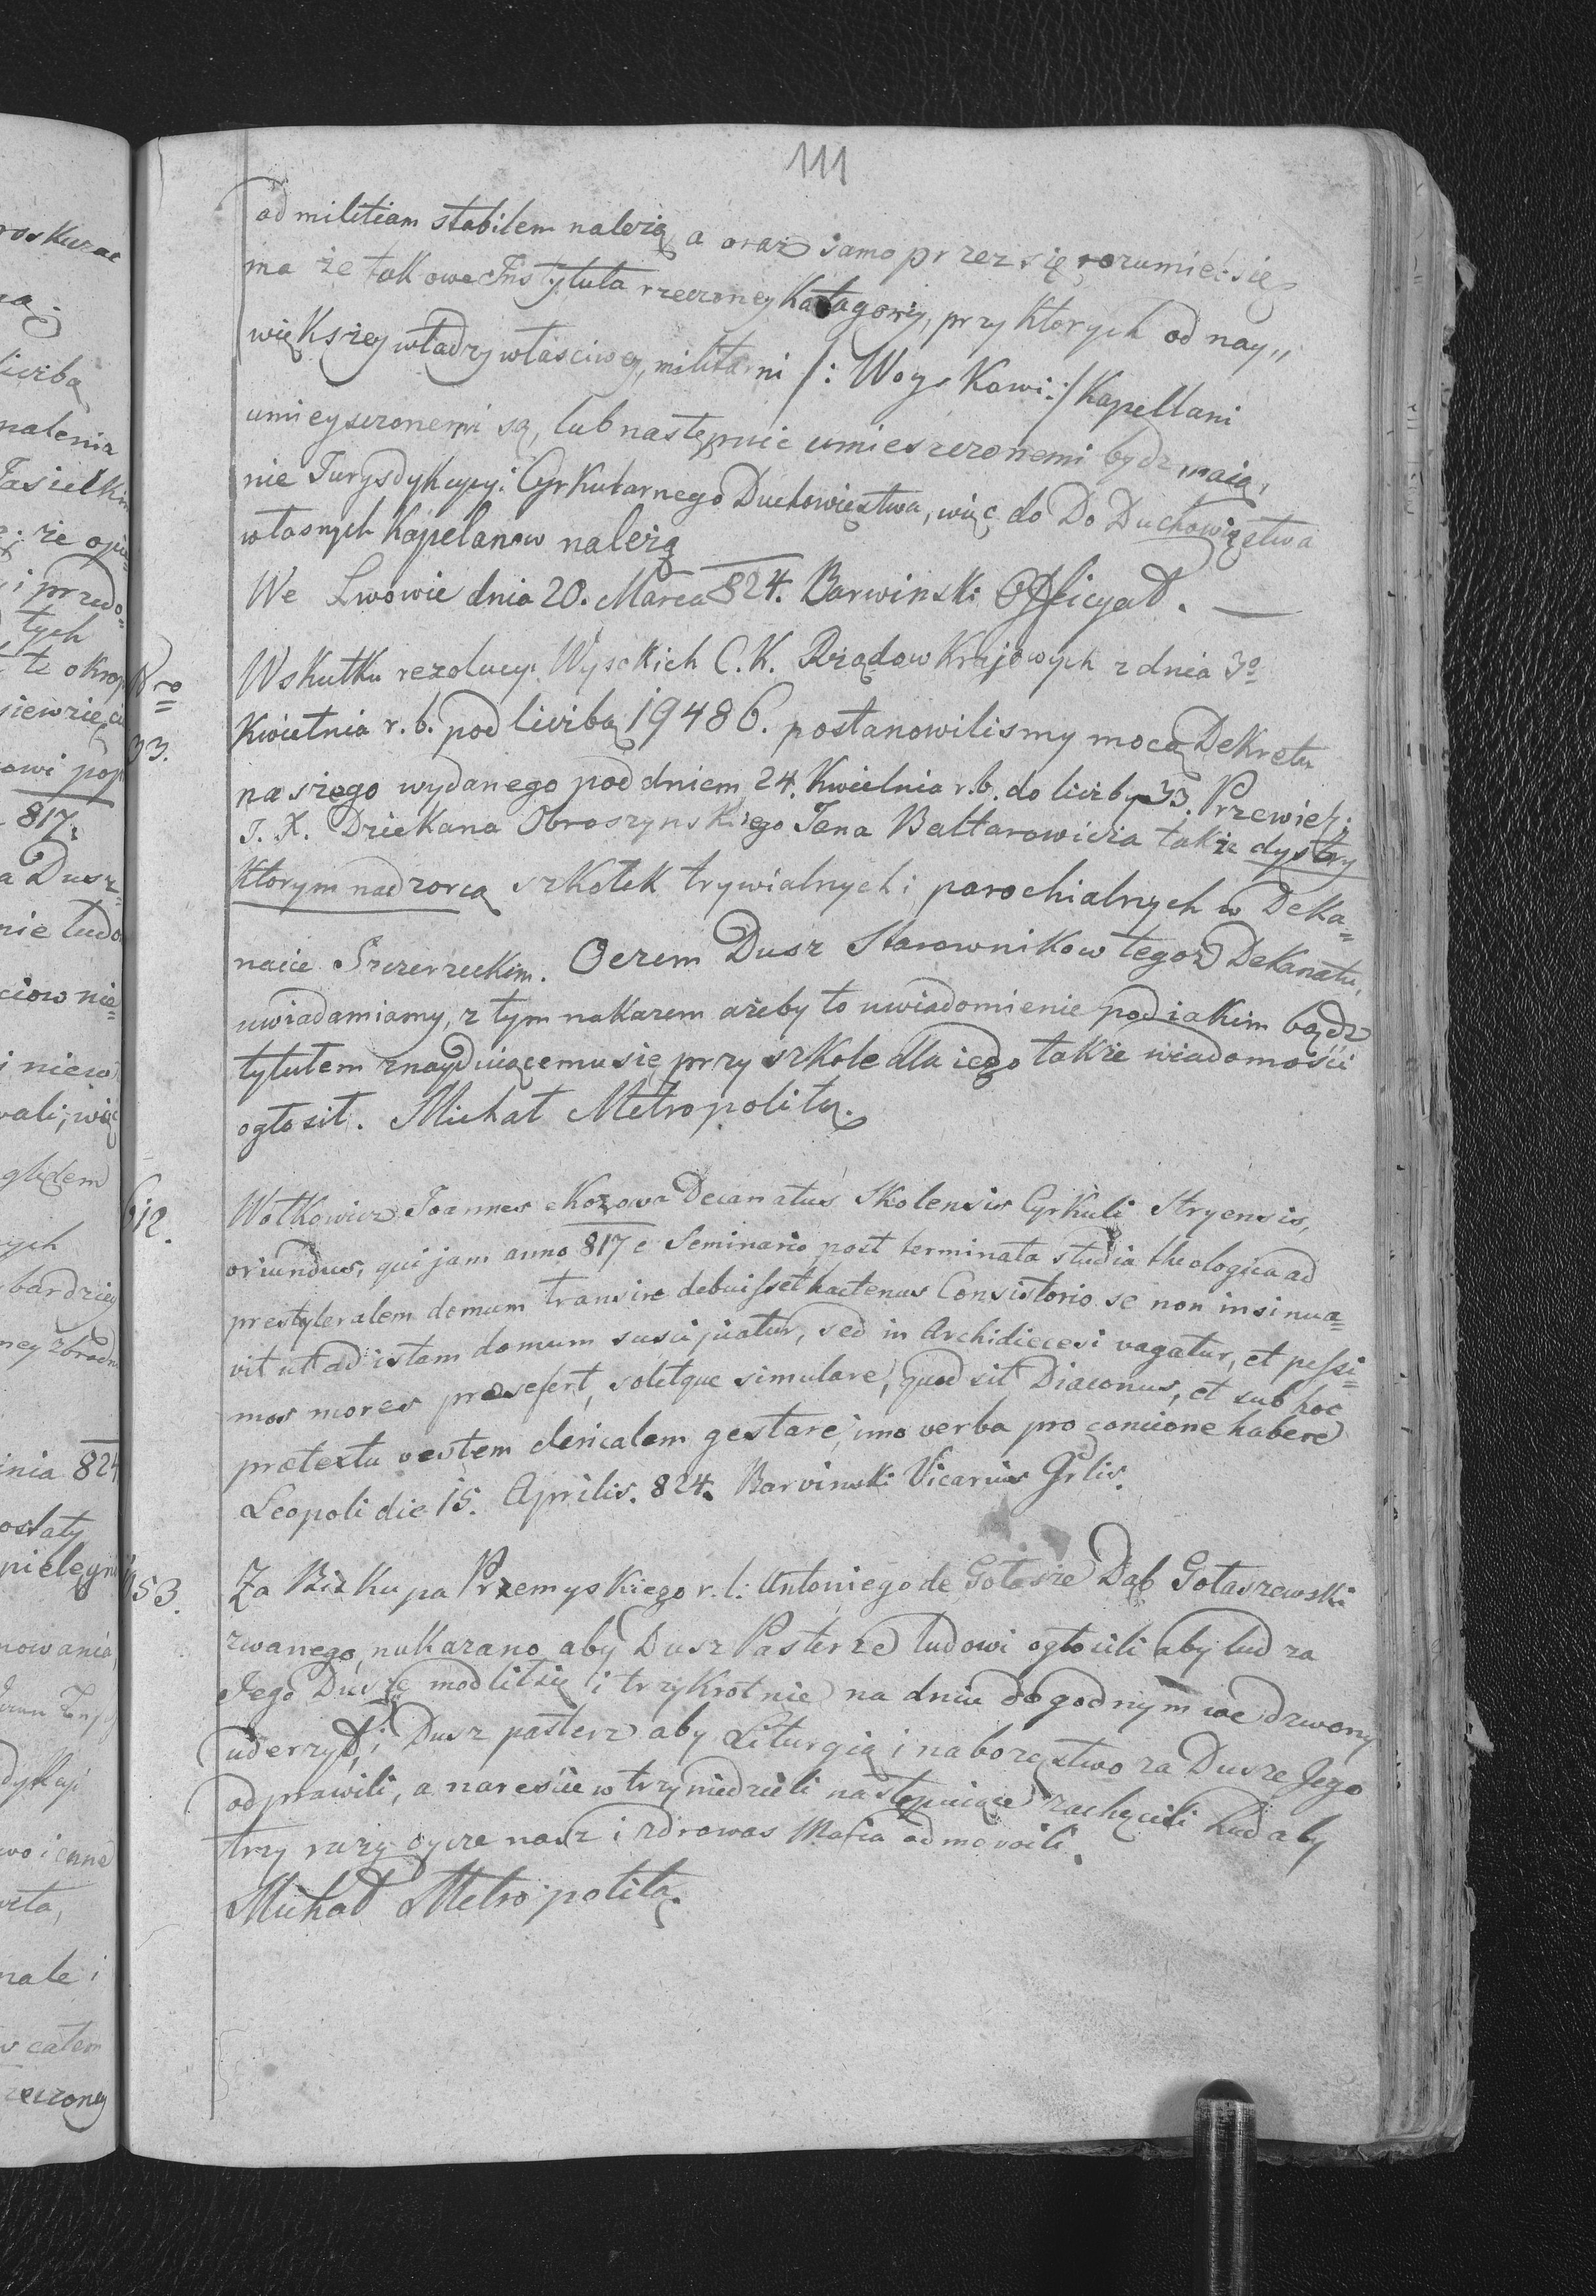 111
ad militiam stabilem należią a oraz samo przez się rozumie się
ma że takowe Instytuta rzeczoney Katagoryi, przy ktorych od nay„
większey władzy właściwey, militarni /: Woyskowi :/ Kapellani
umieyszczonemi są, lub następnie umieszczonemi bydz maią,
nie Jurysdykcyi Cyrkularnego Duchowięstwa, więc do Do Duchowięstwa
własnych Kapelanow należą
We Lwowie dnia 20. Marca 824. Barwinski Officyał. —
Nro
33.
Wskutku rezolucyi Wysokich C. K. Rządow Krajowych z dnia 3o
Kwietnia r. b. pod liczbą 19486. postanowilismy mocą Dekretu
naszego wydanego pod dniem 24. Kwietnia r. b. do liczby 33. Przewiel:
J. X. Dziekana Obroszynskiego Jana Bałtarowicza także dystry
ktorym nadzorcą szkołek trywialnych i parochialnych w Deka=
nacie Szczerzeckim. Oczem Dusz Starownikow tegoż Dekanatu,
uwiadamiamy, z tym nakazem ażeby to uwiadomienie pod iakim bądz
tytułem znayduiącemu się przy szkole dla iego także wiadomości
ogłosił. Michał Metropolita.
612.
Wołkowicz Joannes e Kozowa Decanatus Skolensis Cyrkuli Stryensis,
oriundus, qui jam anno 817 e Seminario post terminata studia theologica ad
prestyleralem domum transire debuisset hactenus Consistorio se non insinua=
vit ut ad istam domum suscipiatur, sed in Archidiecesi vagatur, et pessi=
mos mores præsefert, soletque simulare, quod sit Diaconus, et sub hoc
prætextu vestem clericalem gestare, imo verba pro concione habere
Leopoli die 15. Aprilis. 824. Barvinski Vicarius Grlis.
653.
Za Biskupa Przemyskiego r. l: Antoniego de Gołasze Dąb Gołaszewski
zwanego, nakazano aby Dusz Pasterze ludowi ogłosili aby lud za
Jego Duszę modlił się i trzykrotnie na dniu dogodnym we dzwony
uderzył, i Dusz pasterz aby Liturgią i nabozęstwo za Dusze Jego
odprawili, a nareście w trzy niedzieli następuiące zachęcili Lud aby
trzy razy oycze nasz i zdrowas Maria odmowili.
Michał Metropolita.